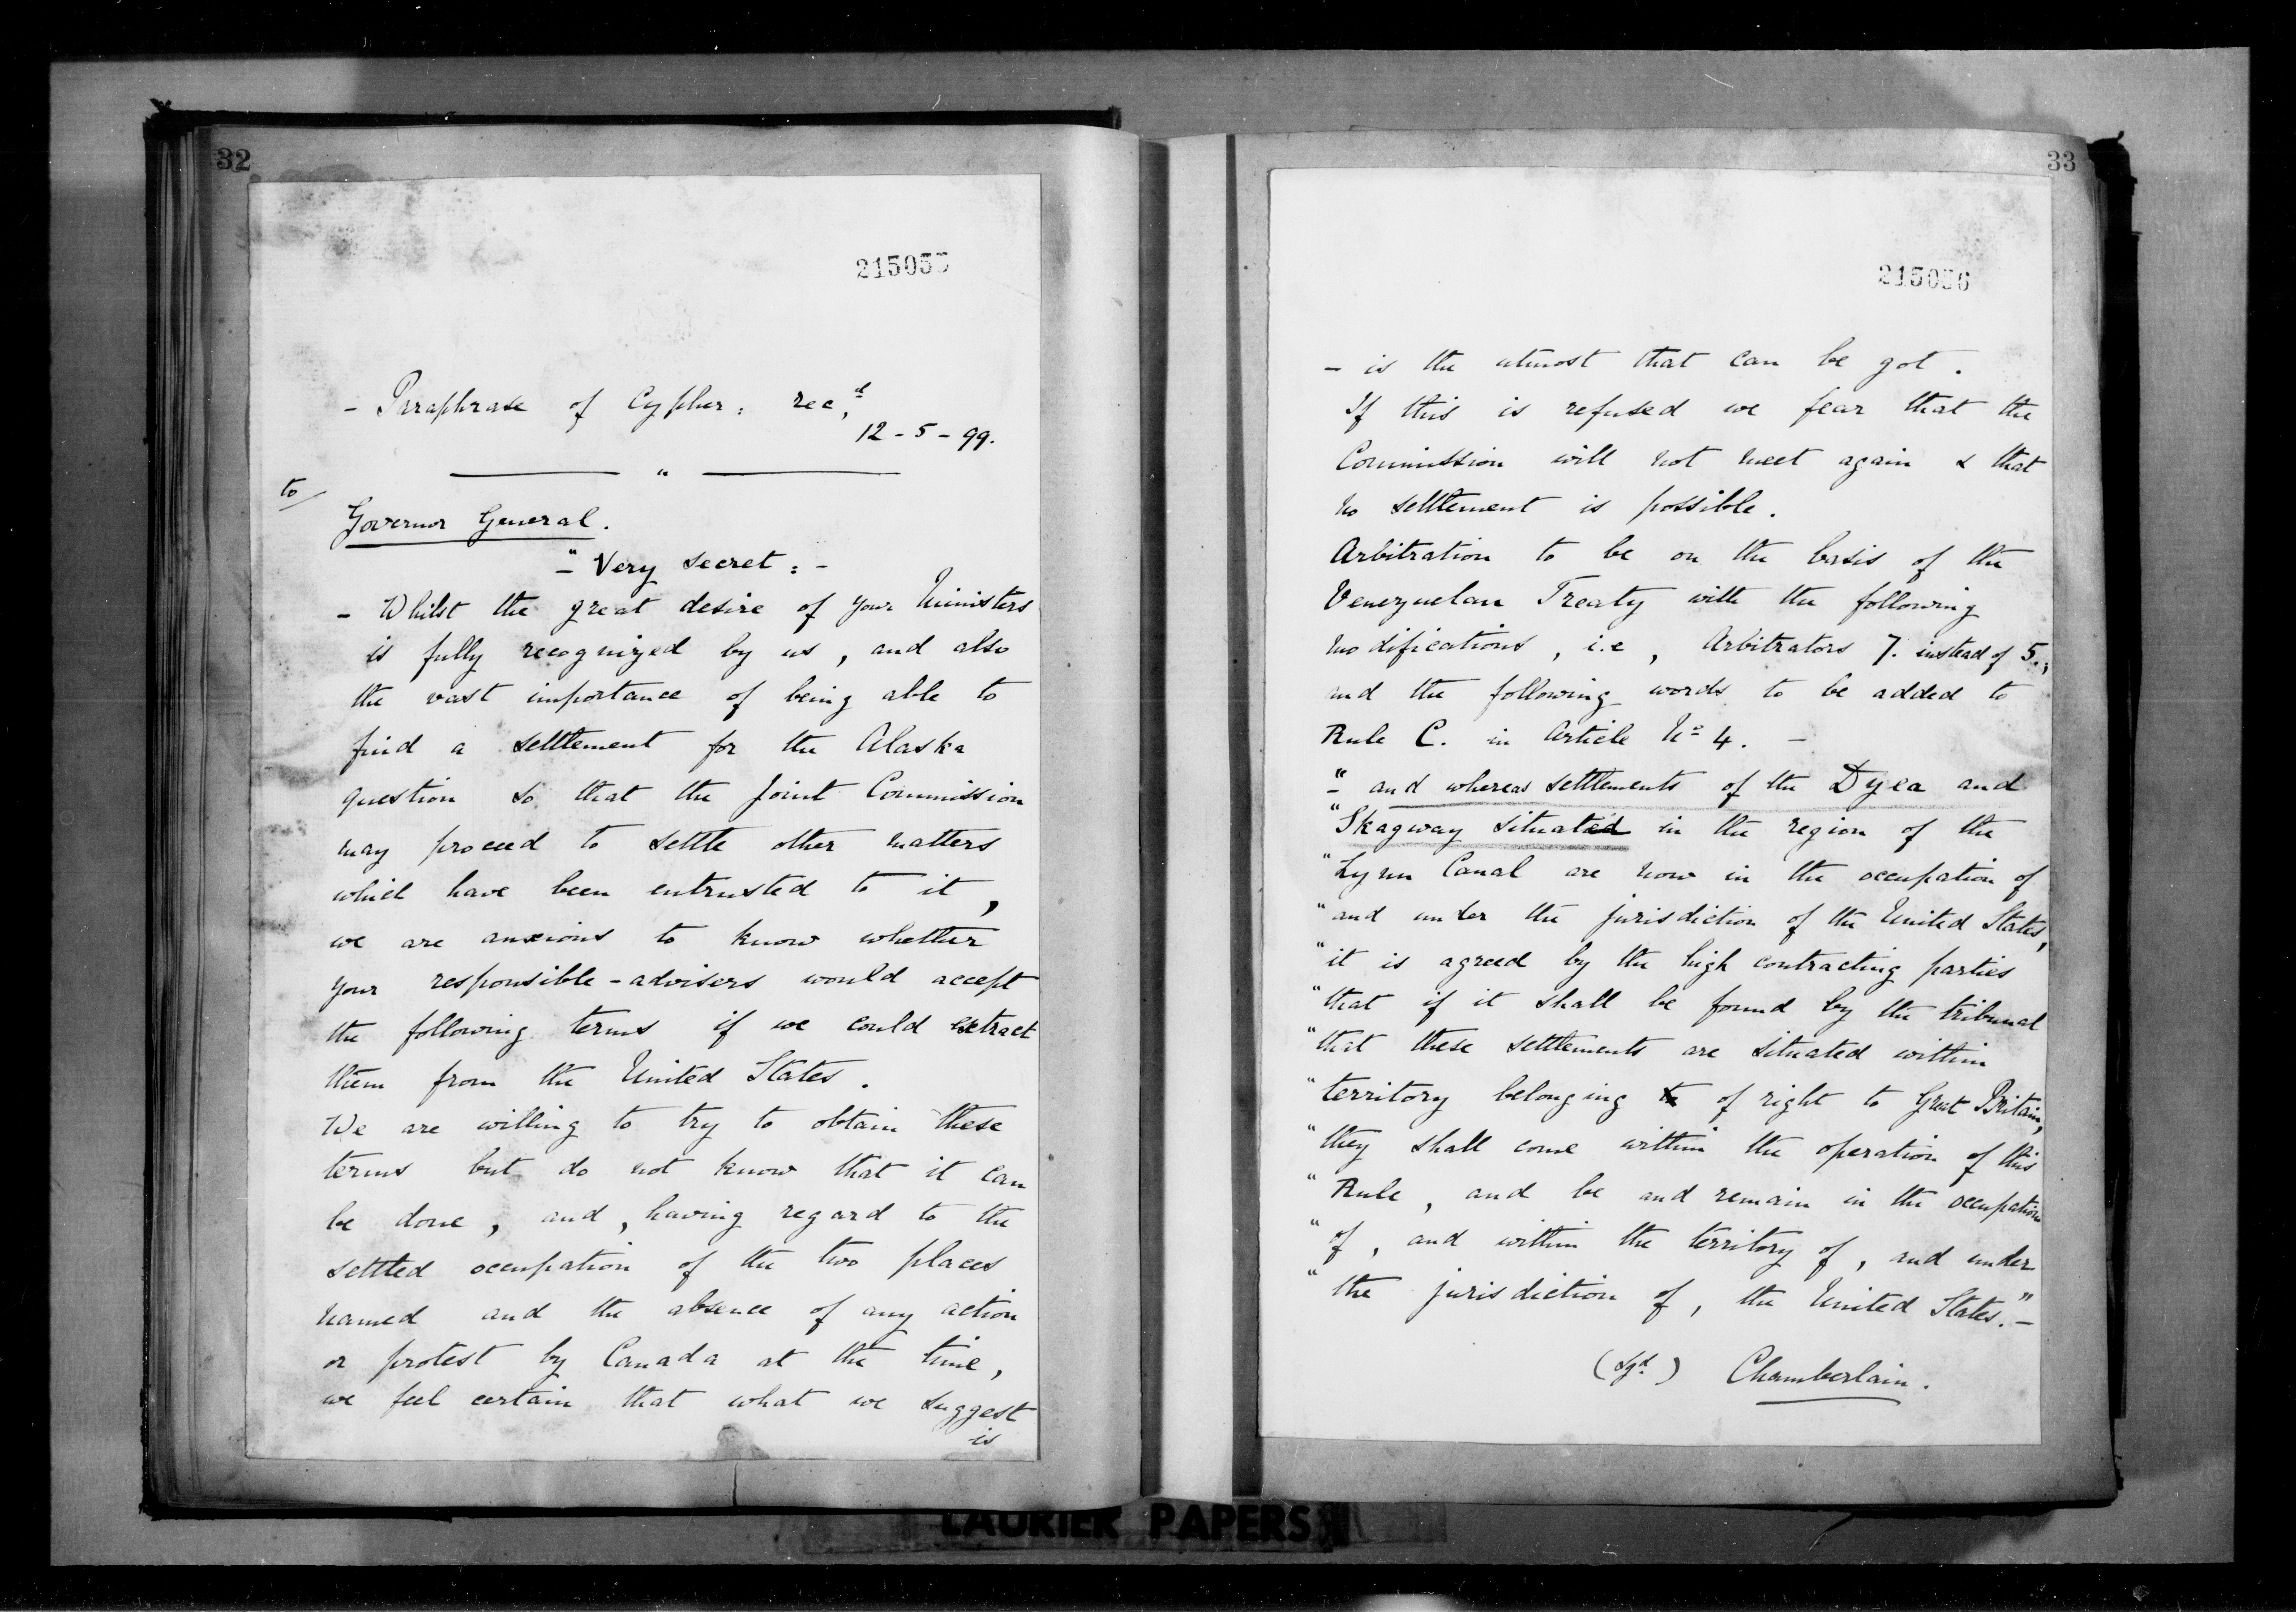 32
215035
- Paraphrase of Cypher: rec.d
12-5-99.
"
to/
Governor General.
"- Very secret: -
- Whilst the great desire of your Ministers
is fully recognized by us, and also
the vast importance of being able to
find a settlement for the Alaska
question so that the Joint Commission
may proceed to settle other matters
which have been entrusted to it,
we are anxious to know whether
your responsible-advisers would accept
the following terms if we could extract
them from the United States.
We are willing to try to obtain these
terms but do not know that it can
be done, and, having regard to the
settled occupation of the two places
named and the absence of any action
or protest by Canada at the time,
we feel certain that what we suggest
is
33
215036
- is the utmost that can be got.
If this is refused we fear that the
Commission will not meet again & that
no settlement is possible.
Arbitration to be on the basis of the
Venezuelan Treaty with the following
modifications, i.e, Arbitrators 7. instead of 5.,
and the following words to be added to
Rule C. in Article No 4. -
"- and whereas settlements of the Dyea and
"Skagway situated in the region of the
"Lynn Canal are now in the occupation of
"and under the jurisdiction of the United States,
"it is agreed by the high contracting parties
"that if it shall be found by the tribunal
"that these settlements are situated within
"territory belonging of right to Great Britain,
"they shall come within the operation of this
"Rule, and be and remain in the occupation
"of, and within the territory of, and under
"the jurisdiction of, the United States."-
(Sgd.) Chamberlain.
LAURIER PAPERS